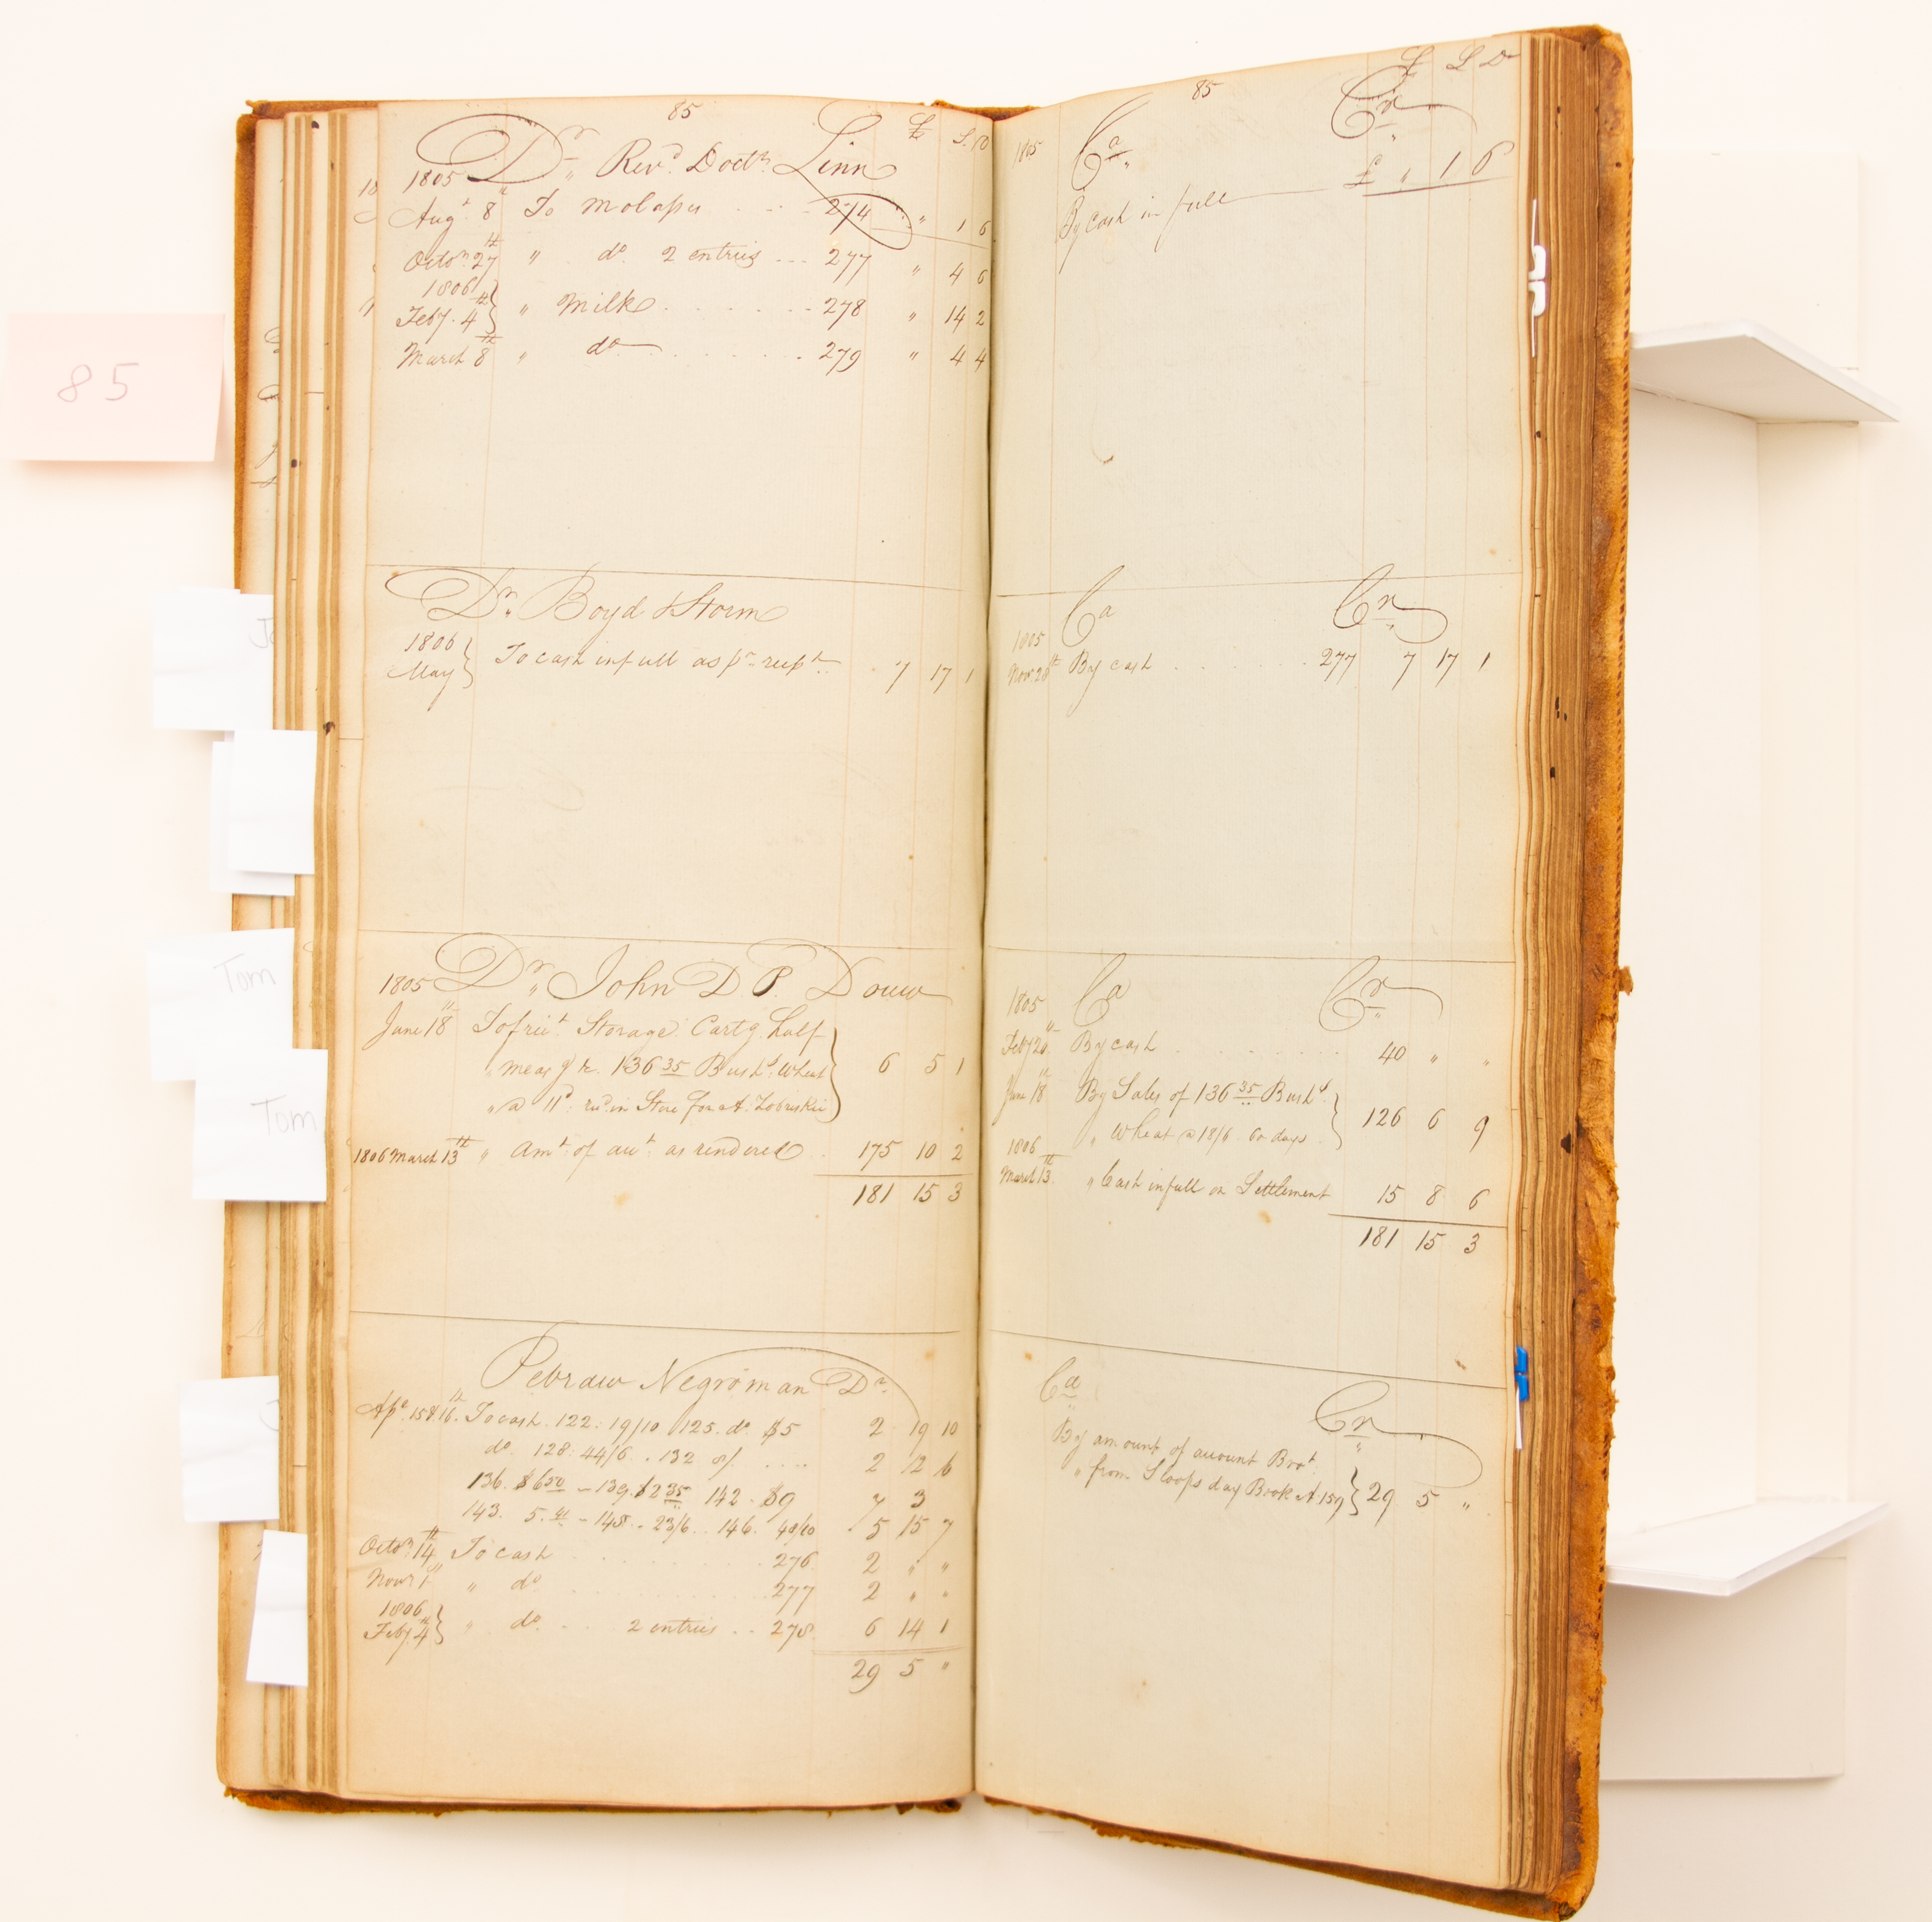 85
85
Dr. Revd. Doctr. Linn £ S. D
1805
Augt. 8 To Molases 274 " 1 6
Octor. 27th " do. 2 entries 277 " 4 6
1806
Feby. 4th " Milk 278 " 14 2
March 8th " do 279 " 4 4
Dr. Boyd & Storm
1806
May To cash in full as pr. recpt. 7 17 1
1805 Dr. John D. P. Douw
June 18th To freit. Storage Cartg. half
" measg. fr. 136 35 Bushs. Wheat 6 5 1
" @ 11d: in Store for
1806 March 13th " Amt: of acct. as rendered 175 10 2
181 15 3
Negroman Dr.
Apl. 15 & 16th. To cash. 122: 19/10 125. do $5 2 19 10
do. 128. 44/6. . 132 8/ 2 12 6
136. $6 50 - 139. $2 35 142. $9 7 3
143. 5. - 145. . 23/6. . 146. 5 15 7
Octor. 14th To cash 276 2 " "
Novr 1st " do 277 2 " "
1806
Feby. 4th " do. 2 entries 278 6 14 1
29 5 "
85
£ S D
1805 Ca. Cr.
By cash in full £ " 1 6
Ca Cr.
1805
Novr. 28th By cash 277 7 17 1
1805 Ca Cr.
Feby 20th By cash 40 " "
June 18th By Sales of 136 35 Bushs.
" Wheat @ 18/6 60 days 126 6 9
1806
March 13th. " Cash in full on Settlement 15 8 6
181 15 3
Ca Cr.
By amount of account Brot.
" from Sloops day Book A 159 29 5 "
Tom
Tom